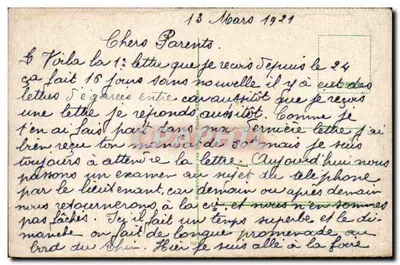 13 Mars 1921
Chers Parents.
Voila la 1e lettre que je reçois depuis le 24
ça fait 16 jours sans nouvelle il y à eut des
lettres d'égarées entre car aussitôt que je reçois
une lettre je réponds aussitôt. Comme je
t'en ai fais part dans ma dernière lettre j'ai
bien reçu ton mandat de 30f mais je suis
toujours à attendre la lettre. Aujourd'hui nous
passons un examen au sujet du téléphone
par le lieutenant, car demain ou après demain
nous retournerons, à la cie et nous n'en sommes
pas fâchés. Ici il fait un temps superbe et le di-
manche on fait de longue promenade au
bord du Rhin. Hier je suis allé à la foire